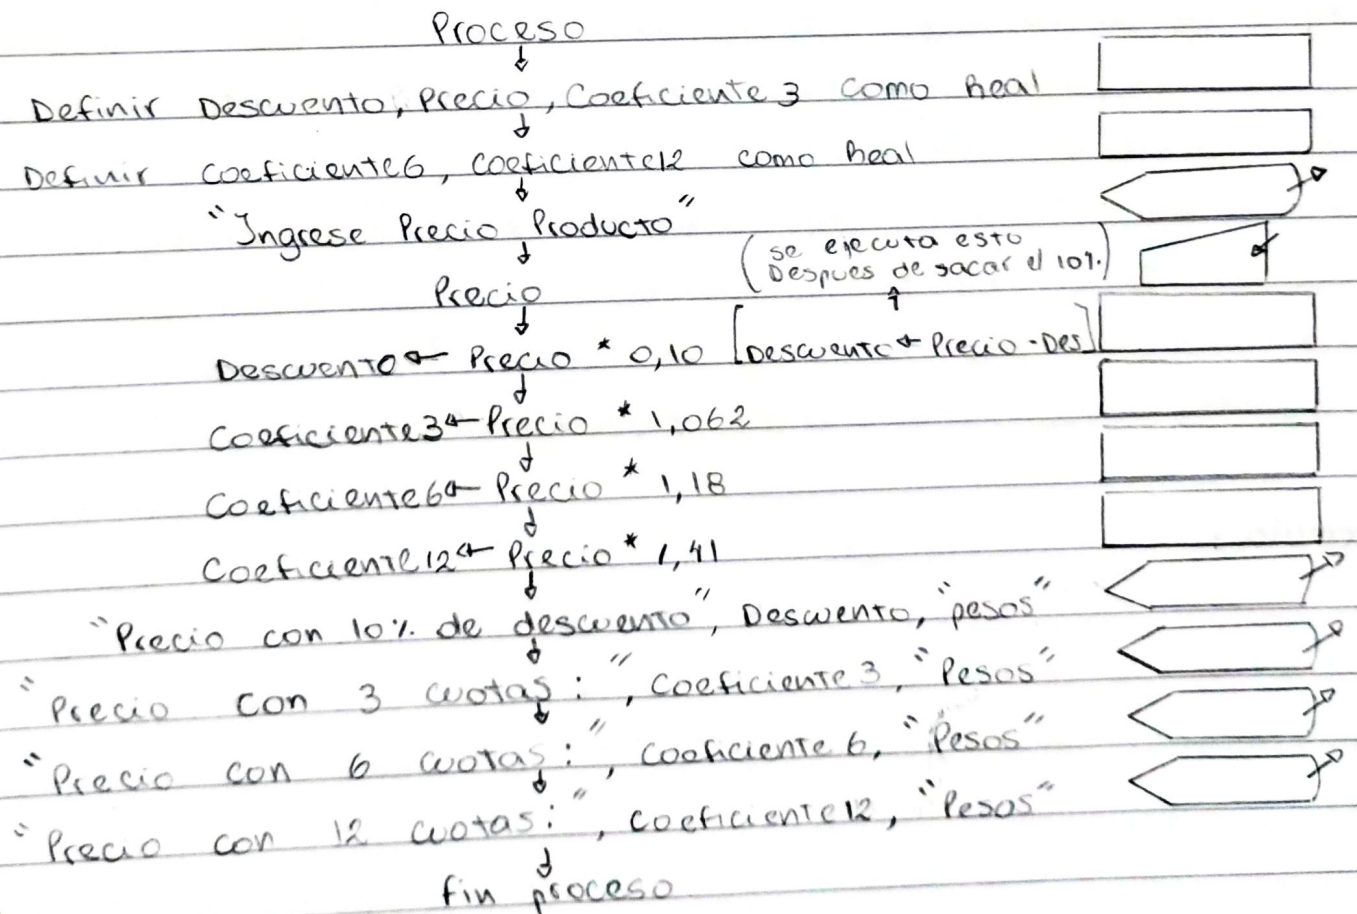 Proceso
Definir Descuento, Precio, Coeficiente 3 como Real
Definir Coeficiente6, Coeficiente12 como Real
"Ingrese Precio Producto"
(se ejecuta esto
Despues de sacar el 10%.)
Precio
Descuento ← Precio * 0,10 [Descuento ← Precio - Des]
Coeficiente3 ← Precio * 1,062
Coeficiente6 ← Precio * 1,18
Coeficiente12 ← Precio * 1,41
"Precio con 10% de descuento", Descuento, "pesos"
"Precio con 3 cuotas:", Coeficiente 3, "Pesos"
"Precio con 6 cuotas:", Coeficiente 6, "Pesos"
"Precio con 12 cuotas:", Coeficiente12, "Pesos"
fin proceso